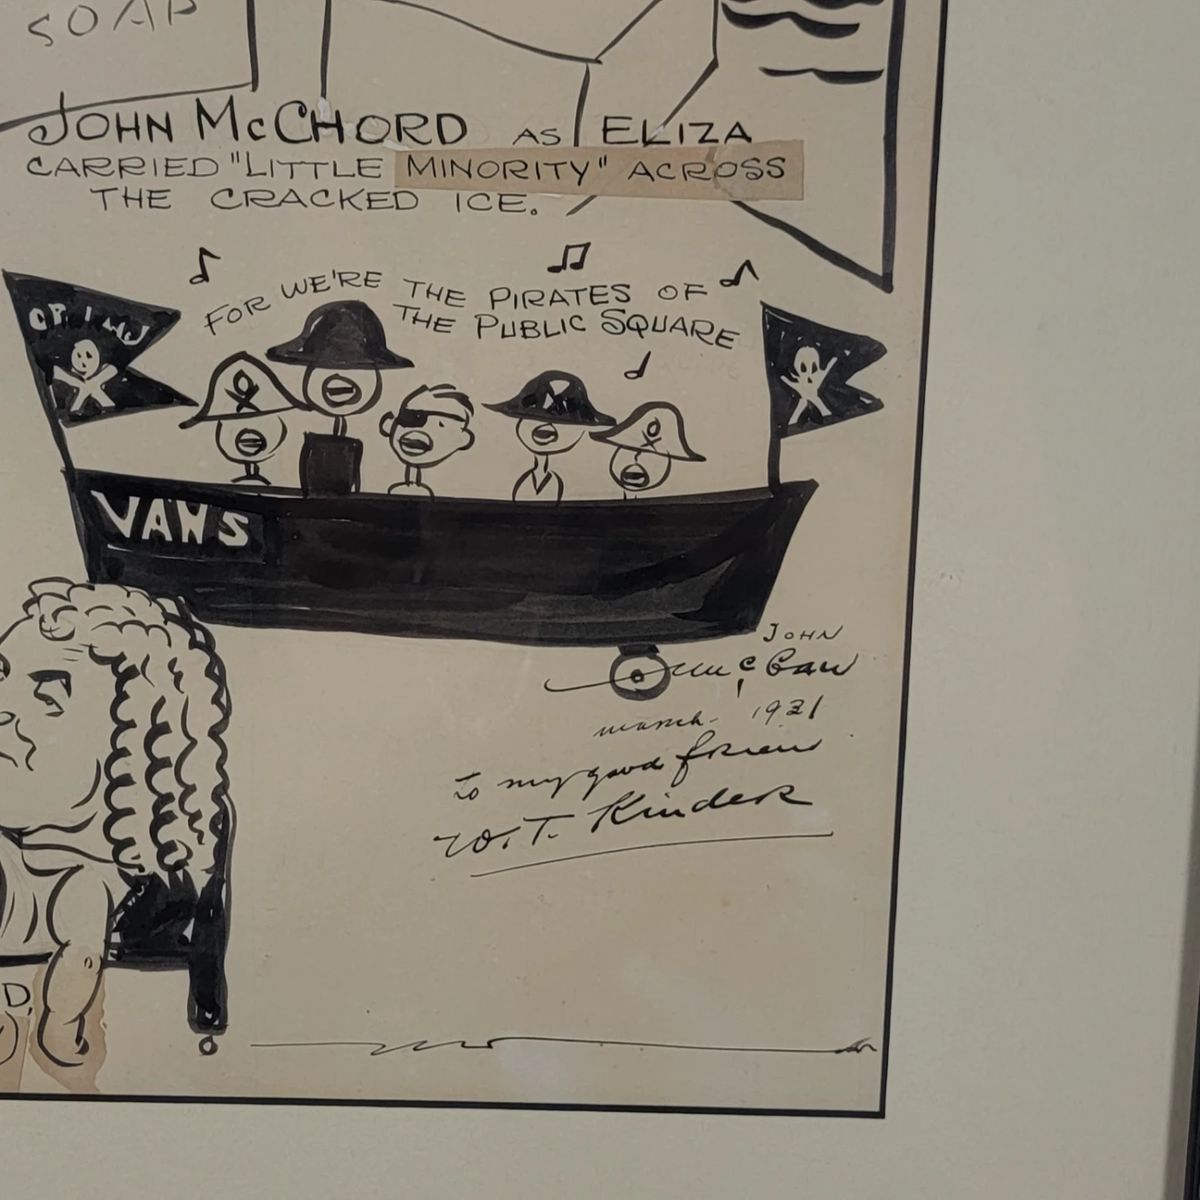 SOAP
JOHN McCHORD AS ELIZA
CARRIED "LITTLE MINORITY" ACROSS
THE CRACKED ICE.
FOR WE'RE THE PIRATES OF
THE PUBLIC SQUARE
VANS
JOHN
McCaw
march - 1931
To my good friend
W. T. Kinder
D,